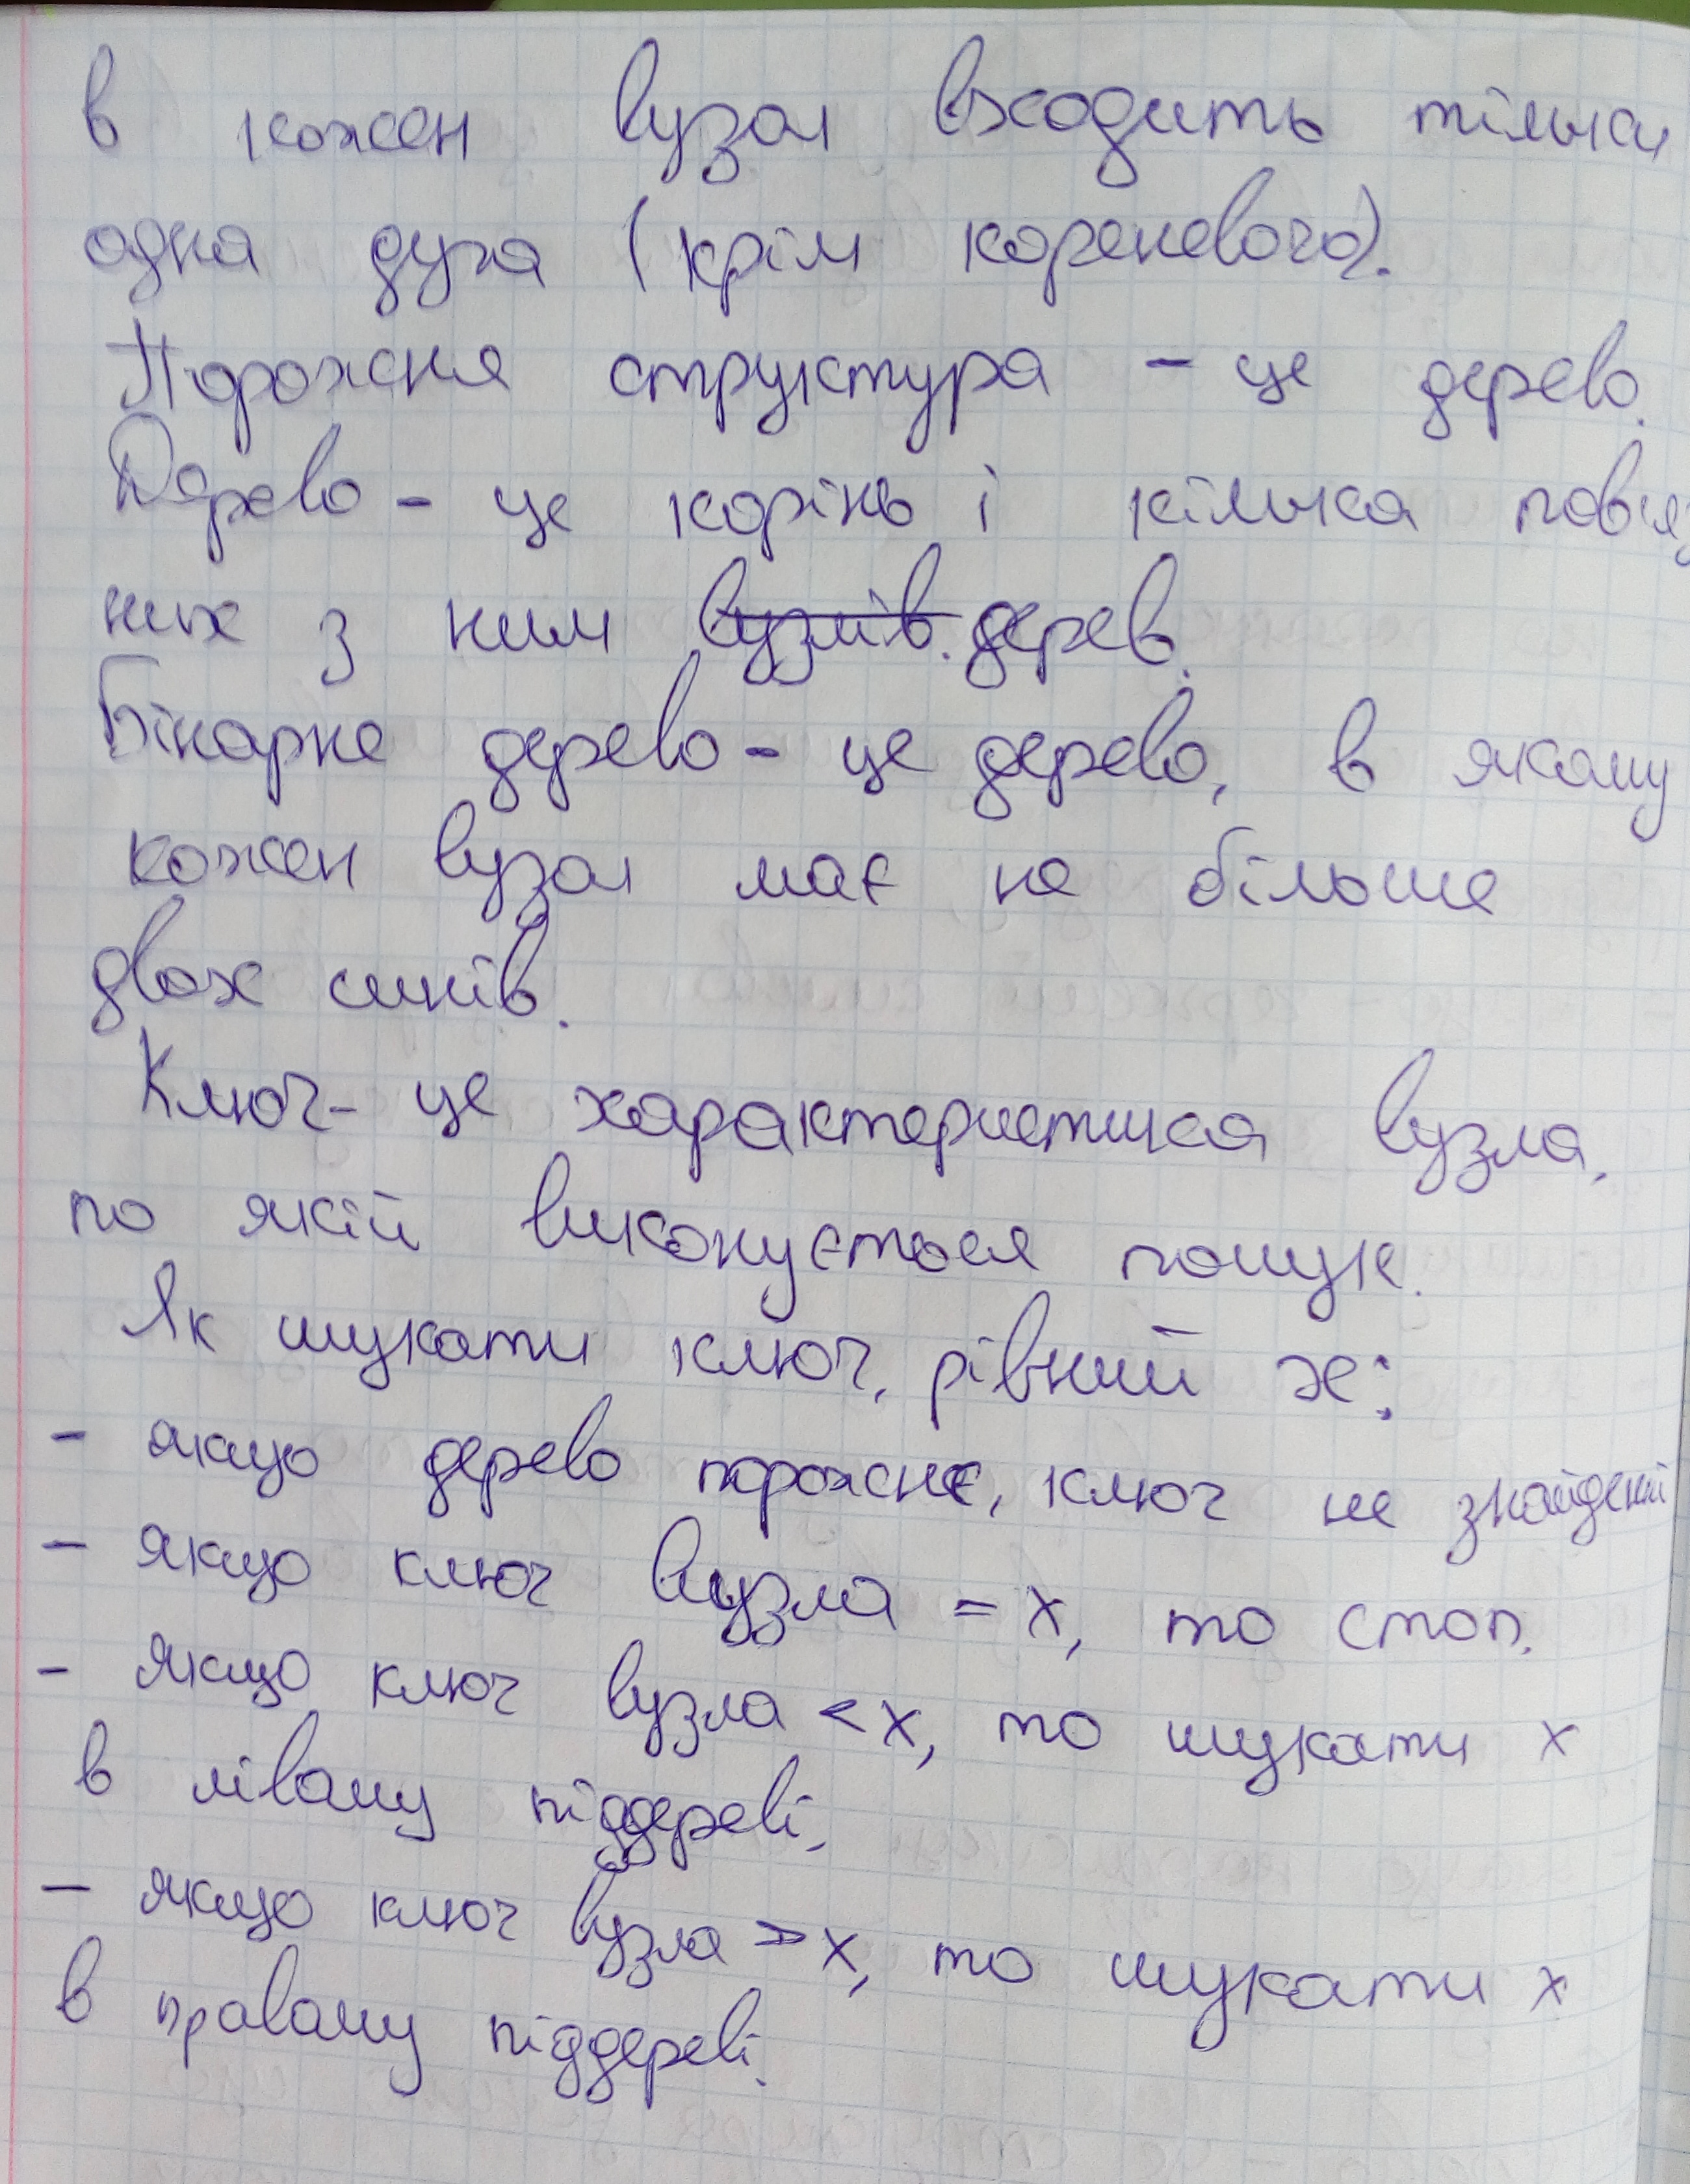 в кожен вузол входить тільки
одна дуга (крім кореневого).
Порожня структура - це дерево.
Дерево - це корінь і кілька повʼяз
них з ним вузлів. дерев.
Бінарне дерево - це дерево, в якому
кожен вузол має не більше
двох синів.
Ключ - це характеристика вузла,
по якій виконується пошук.
Як шукати ключ, рівний х:
- якщо дерево порожнє, ключ не знайдений
- якщо ключ вузла = х, то стоп.
- якщо ключ вузла < х, то шукати х
в лівому піддереві,
- якщо ключ вузла > х, то шукати х
в правому піддереві.